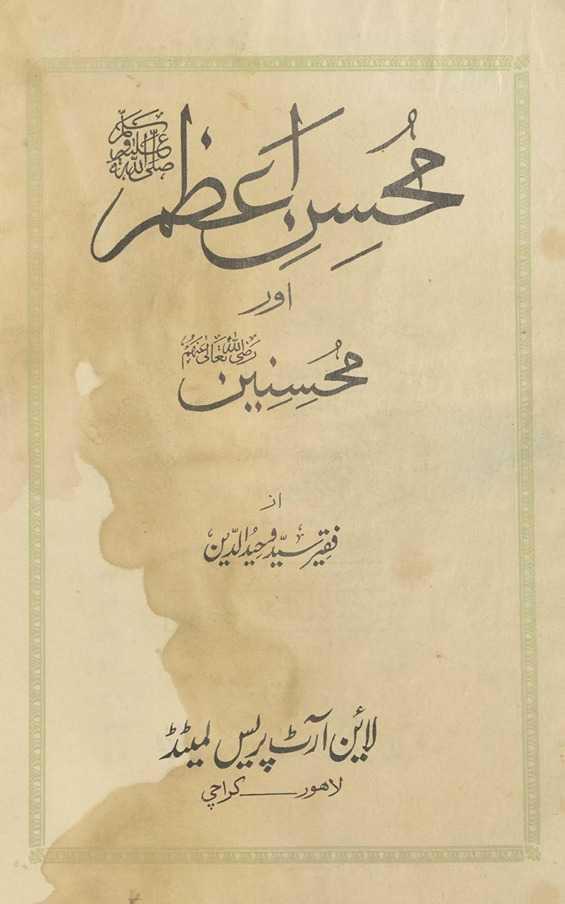 مُحسِنِ اَعظم صلی اللہ علیہ وسلم
اور
مُحسِنِین رَضِیَ اللہُ تَعَالیٰ عَنہُم
از
فقیر سیّد وحیدُ الدّین
لائن آرٹ پریس لمیٹڈ
لاھور — کراچی